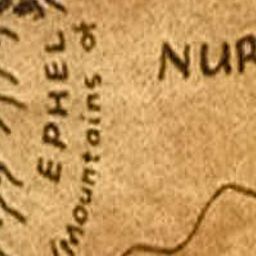 EPHEL
Mountains of
NUR